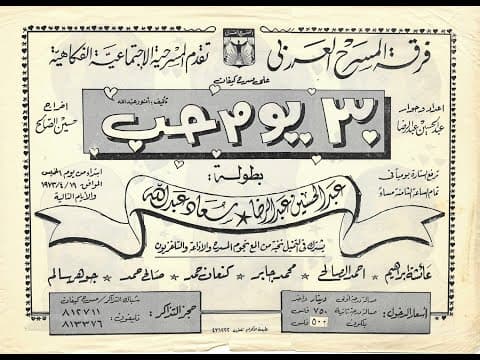 فرقة المسرح العربي
تقدم المسرحية الاجتماعية الفكاهية
على مسرح كيفان
تأليف: أنور عبد الله
اعداد وحوار
عبد الحسين عبد الرضا
٣٠ يوم حب
اخراج
حسين الصالح
ترفع الستارة يومياً في
تمام الساعة الثامنة مساءً
بطولة:
عبد الحسين عبد الرضا ★ سعاد عبد الله
ابتداء من يوم الخميس
الموافق ١٩٧٣/٤/١٩
والأيام التالية
يشترك في التمثيل نخبة من المع نجوم المسرح والاذاعة والتلفزيون
عائشة ابراهيم ★ احمد الصالح ★ محمد جابر ★ كنعان حمد ★ صالح حمد ★ جوهر سالم
أسعار الدخول:
صالة درجة أولى دينار واحد
صالة درجة ثانية ٧٥٠ فلس
بلكون ٥٠٠ فلس
حجز التذاكر:
شباك التذاكر / مسرح كيفان
تليفون: ٨١٢٧١١
٨١٣٣٧٦